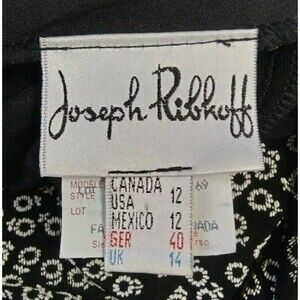 Joseph Ribkoff
MODELE
STYLE
LOT
CANADA 12
USA
MEXICO 12
GER 40
UK 14
69
FA